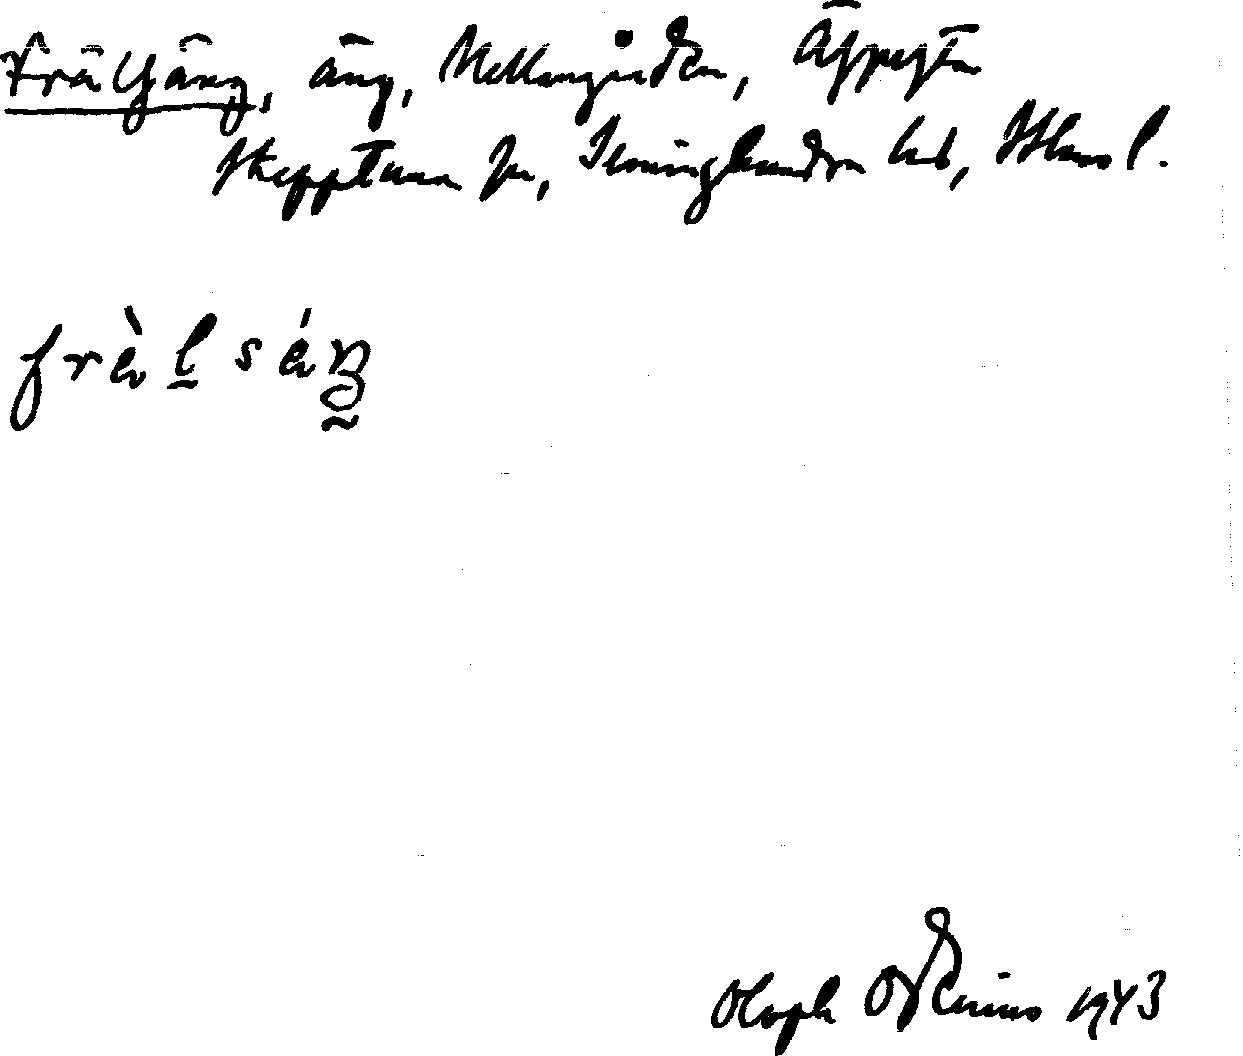 Frälsäng, äng, Mellangården, Äspesta
Skepptuna sn, Seminghundra hd, Sthms l.
frὲlsέŋ
Olaph Odenius 1943